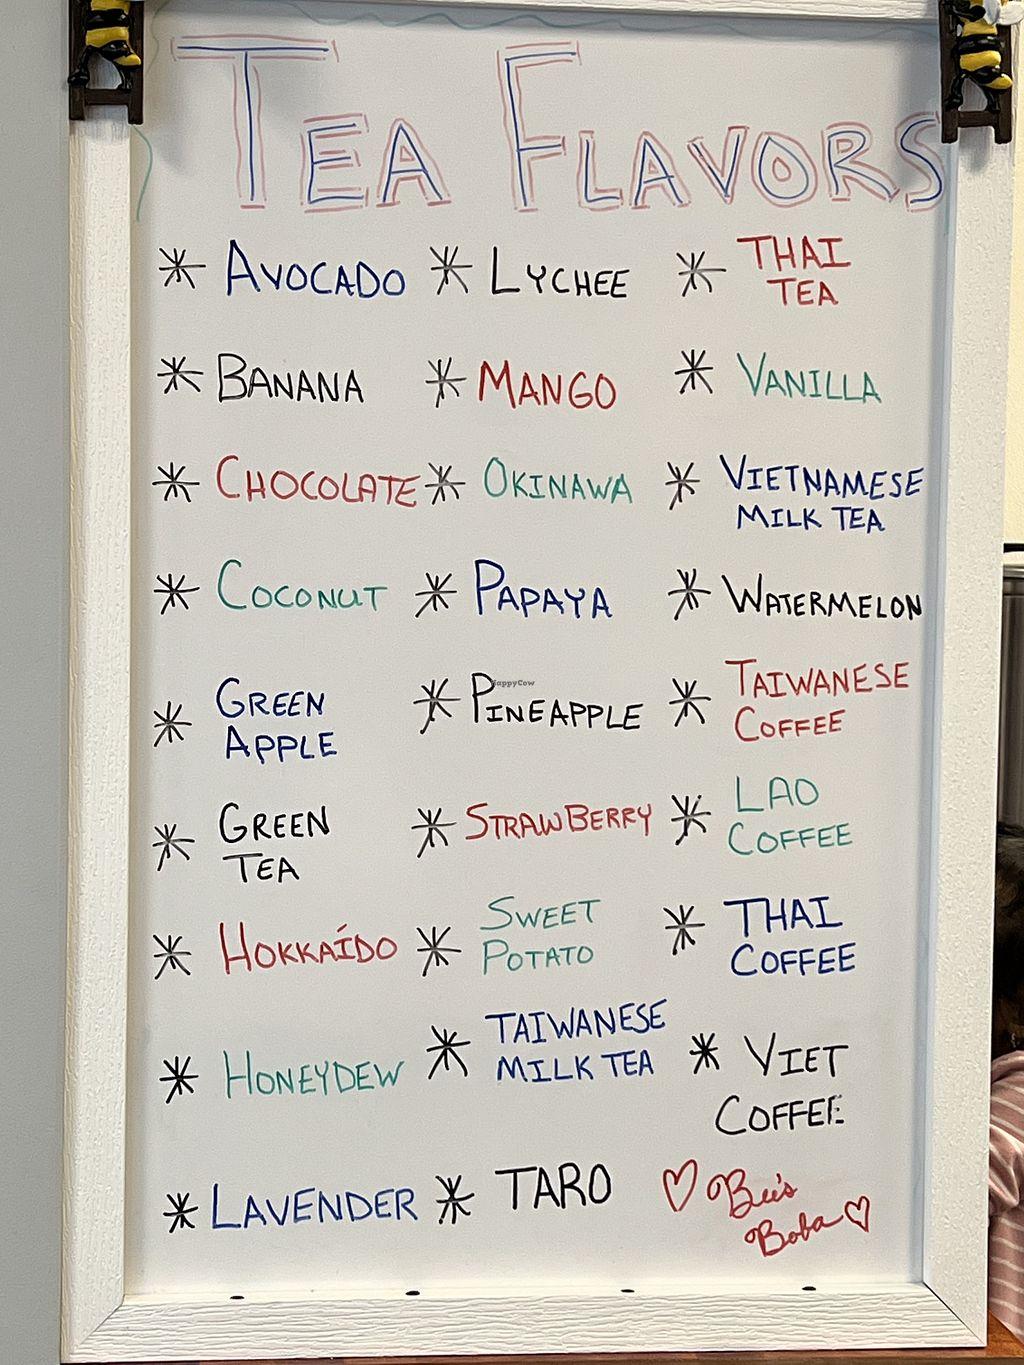 TEA FLAVORS
* AVOCADO
* LYCHEE
* THAI
TEA
* BANANA
* MANGO
* VANILLA
* CHOCOLATE
* OKINAWA
* VIETNAMESE
MILK TEA
* COCONUT
* PAPAYA
* WATERMELON
* GREEN
APPLE
* PINEAPPLE
* TAIWANESE
COFFEE
* GREEN
TEA
* STRAWBERRY
* LAO
COFFEE
* HOKKAÍDO
* SWEET
POTATO
* THAI
COFFEE
* HONEYDEW
* TAIWANESE
MILK TEA
* VIET
COFFEE
* LAVENDER
* TARO
♡ Bee's
Boba ♡
HappyCow